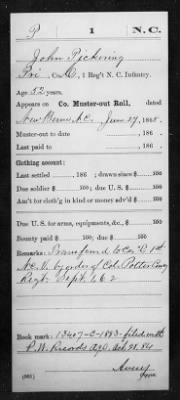 P | 1 | N.C.
John Pickering
Pri, Co. C, 1 Reg't N. C. Infantry.
Age 52 years.
Appears on Co. Muster-out Roll, dated
New Berne N.C. June 27, 1865.
Muster-out to date , 186 .
Last paid to , 186 .
Clothing account:
Last settled , 186 ; drawn since $ 100
Due soldier $ 100; due U. S. $ 100
Am't for cloth'g in kind or money adv'd $ 100
Due U. S. for arms, equipments, &c., $ 100
Bounty paid $ 100; due $ 100
Remarks: Transferred to Co. 1st
N.C.V. by order of Col. Potter Comg
Regt. Sept. 62
Book mark: 13407-C-1883- filed with
P.W. Records Oct 28, 84
(361)